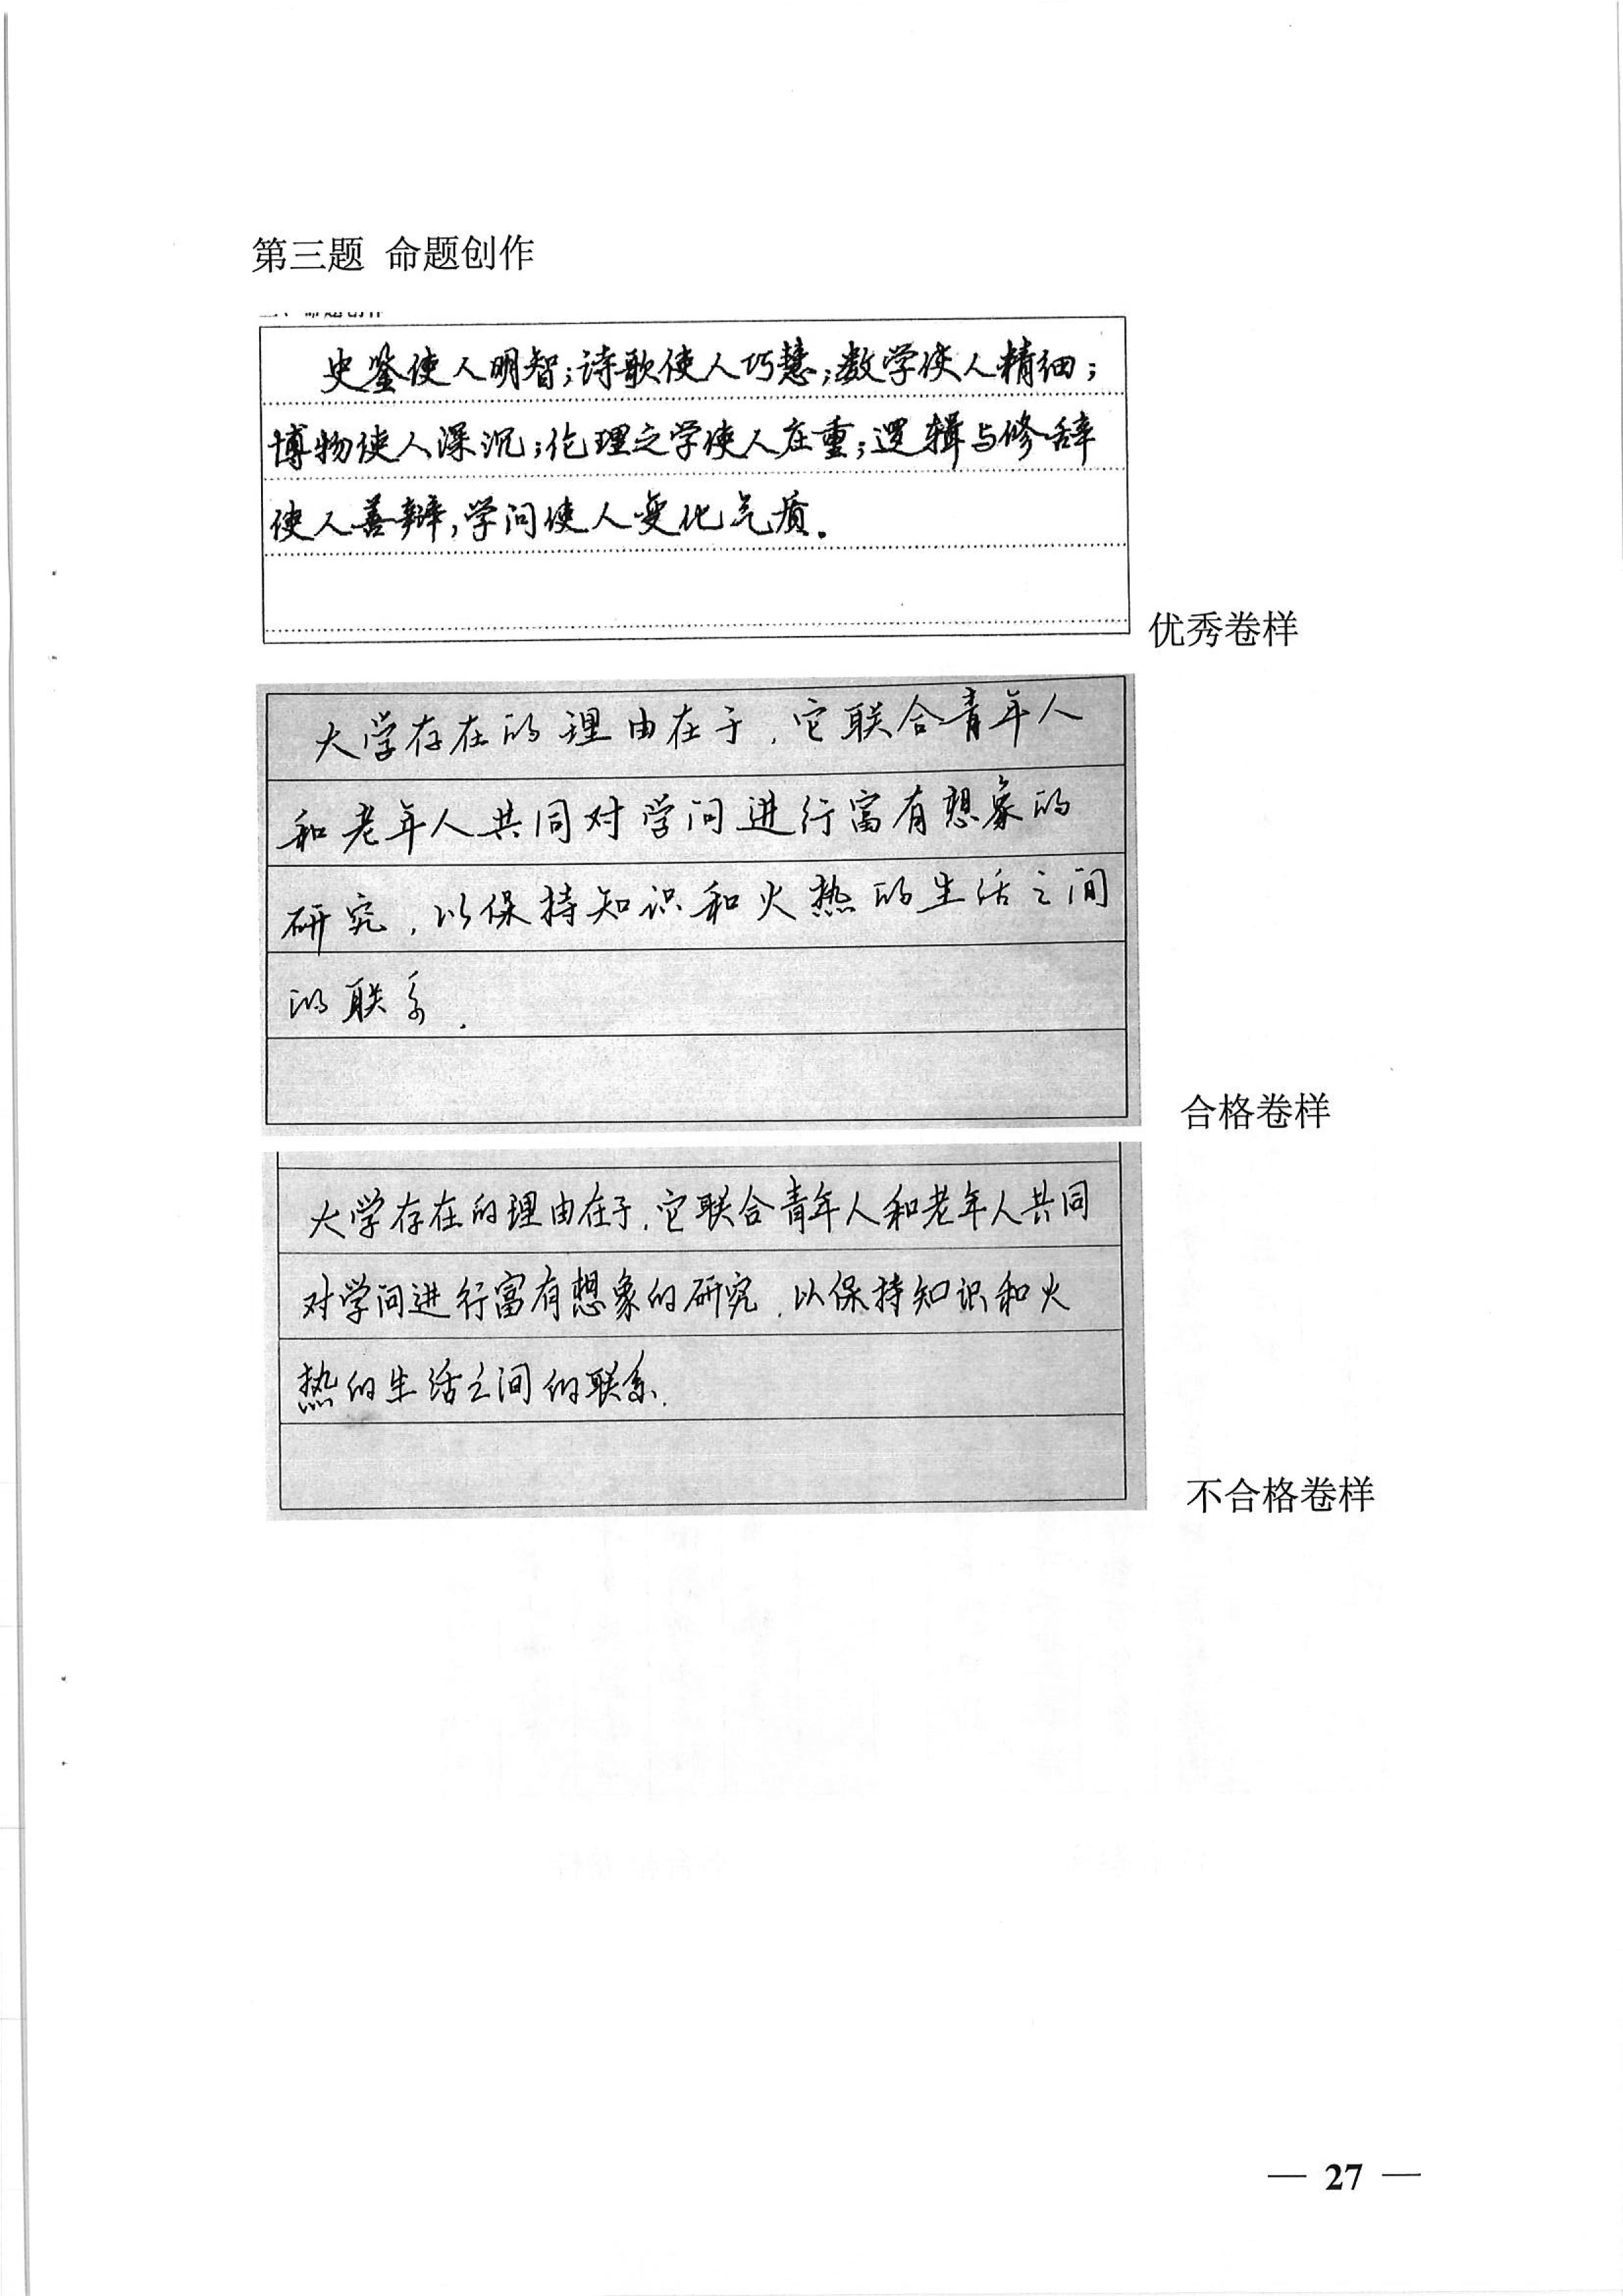 第三题 命题创作
史鉴使人明智;诗歌使人巧慧;数学使人精细;
博物使人深沉;伦理之学使人庄重;逻辑与修辞
使人善辩,学问使人变化气质.
优秀卷样
大学存在的理由在于,它联合青年人
和老年人共同对学问进行富有想象的
研究,以保持知识和火热的生活之间
的联系.
合格卷样
大学存在的理由在于,它联合青年人和老年人共同
对学问进行富有想象的研究,以保持知识和火
热的生活之间的联系.
不合格卷样
— 27 —